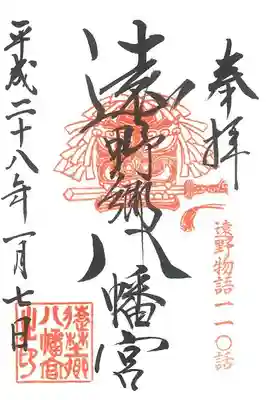 奉拝
遠野物語一一〇話
遠野郷八幡宮
平成二十八年一月七日
遠野郷
八幡宮
之印